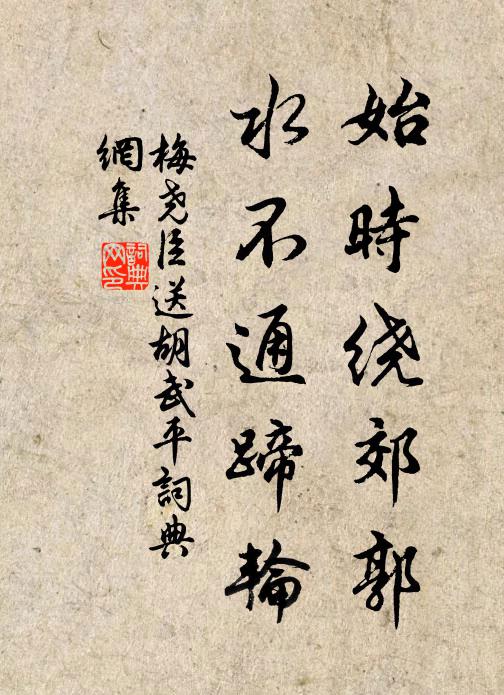 始時绕郊郭
水不通蹄輪
梅尧臣送胡武平詞典
網集
詞典
网印